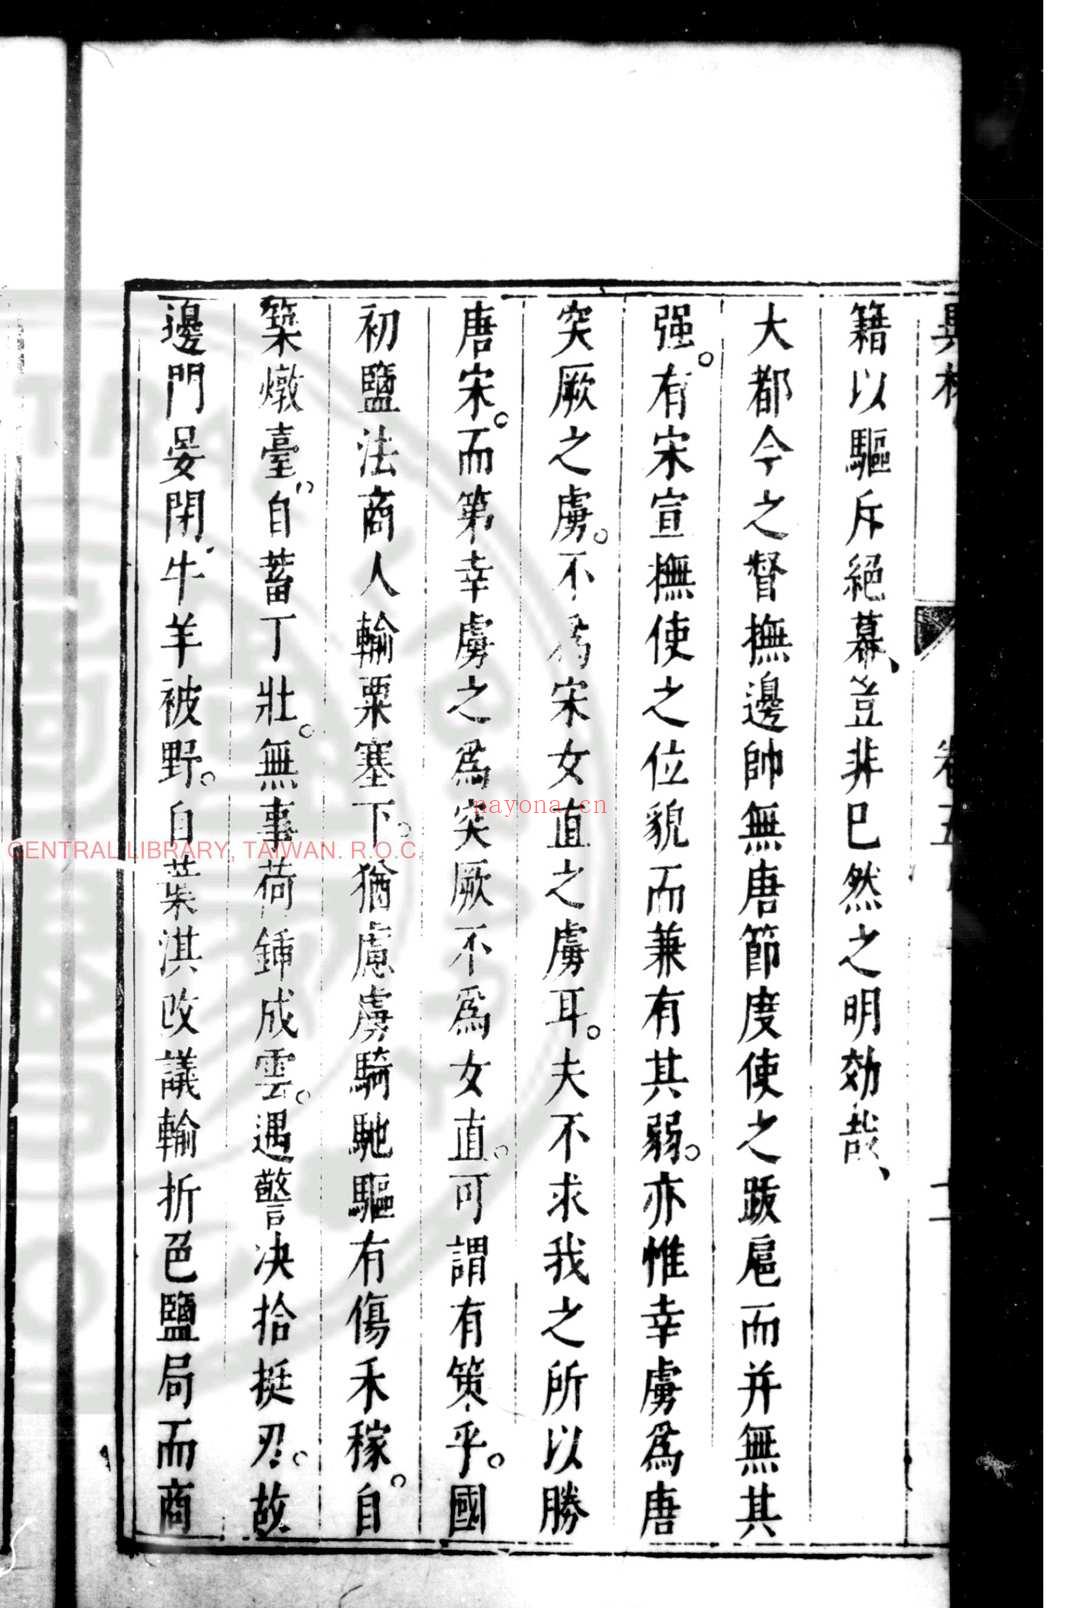 籍以驅斥絕幕、豈非已然之明効哉、
大都今之督撫邊帥無唐節度使之跋扈而并無其
强。有宋宣撫使之位貌而兼有其弱。亦惟幸虜爲唐
突厥之虜。不爲宋女直之虜耳。夫不求我之所以勝
唐宋。而第幸虜之爲突厥不爲女直。可謂有策乎。國
初鹽法商人輸粟塞下。猶慮虜騎馳驅有傷禾稼。自
築燉臺。自蓄丁壯。無事荷鍤成雲。遇警决拾挺刃。故
邊門晏閉牛羊被野。自葉淇改議輸折色鹽局而商
nayona.cn
CENTRAL LIBRARY, TAIWAN. R.O.C.